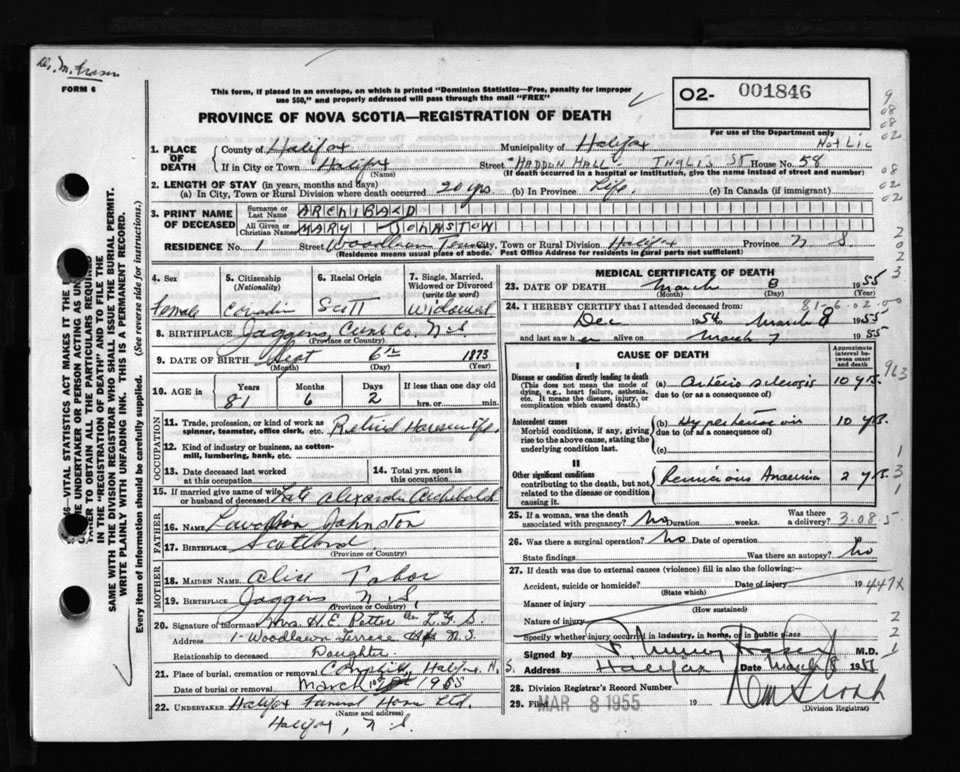 Dr. M. Fraser
FORM 6
This form, if placed in an envelope, on which is printed "Dominion Statistics—Free, penalty for improper
use $50," and properly addressed will pass through the mail "FREE"
02- 001846
PROVINCE OF NOVA SCOTIA—REGISTRATION OF DEATH
For use of the Department only
Not Lic
1. PLACE OF DEATH
County of Halifax Municipality of Halifax
If in City or Town Halifax Street HADDON HALL - INGLIS ST House No. 58
(Name) (If death occurred in a hospital or institution, give the name instead of street and number)
2. LENGTH OF STAY (in years, months and days)
(a) In City, Town or Rural Division where death occurred 20 yrs (b) In Province Life. (c) In Canada (if immigrant)
3. PRINT NAME OF DECEASED
Surname or Last Name ARCHIBALD
All Given or Christian Names MARY JOHNSTON
RESIDENCE No. 1 Street Woodlawn Terrace City, Town or Rural Division Halifax Province N S
(Residence means usual place of abode. Post Office Address for residents in rural parts not sufficient)
4. Sex
Female
5. Citizenship (Nationality)
Canadian
6. Racial Origin
Scott
7. Single, Married, Widowed or Divorced (write the word)
Widowed
8. BIRTHPLACE Joggins, Cumb Co, N.S.
(Province or Country)
9. DATE OF BIRTH Sept 6th 1873
(Month) (Day) (Year)
10. AGE in Years Months Days If less than one day old
81 6 2 hrs. or min.
OCCUPATION
11. Trade, profession, or kind of work as
spinner, teamster, office clerk, etc. Retired Housewife.
12. Kind of industry or business, as cotton-
mill, lumbering, bank, etc.
13. Date deceased last worked
at this occupation
14. Total yrs. spent in
this occupation
15. If married give name of wife
or husband of deceased Late Alexander Archibald
FATHER
16. NAME Johnston
17. BIRTHPLACE Scotland
(Province or Country)
MOTHER
18. MAIDEN NAME Alice Tabor
19. BIRTHPLACE Joggins N.S.
(Province or Country)
20. Signature of informant Mrs. H.E. Retter
Address 1 Woodlawn Terrace Hfx N.S.
Relationship to deceased Daughter
21. Place of burial, cremation or removal Camphill, Halifax N.S.
Date of burial or removal March 1955
22. UNDERTAKER Halifax Funeral Home Ltd.
(Name and address)
Halifax, N.S.
MEDICAL CERTIFICATE OF DEATH
23. DATE OF DEATH March 8 1955
(Month) (Day) (Year)
24. I HEREBY CERTIFY that I attended deceased from: 81-6-02-00
Dec 1954 to March 8 1955
and last saw her alive on March 7 1955
CAUSE OF DEATH
Approximate interval between onset and death
I
Disease or condition directly leading to death
(This does not mean the mode of dying, e.g., heart failure, asthenia, etc. It means the disease, injury, or complication which caused death.)
(a) Arterio sclerosis 10 yrs.
due to (or as a consequence of)
Antecedent causes
Morbid conditions, if any, giving rise to the above cause, stating the underlying condition last.
(b) Hypertension 10 yrs.
due to (or as a consequence of)
(c)
II
Other significant conditions
contributing to the death, but not related to the disease or condition causing it.
Pernicious Anaemia 2 yrs.
25. If a woman, was the death
associated with pregnancy? No Duration weeks. Was there a delivery? 3-08-5
26. Was there a surgical operation? No Date of operation
State findings Was there an autopsy? No
27. If death was due to external causes (violence) fill in also the following:—
Accident, suicide or homicide? Date of injury 19 447X
(State which)
Manner of injury
(How sustained)
Nature of injury
Specify whether injury occurred in industry, in home, or in public place
Signed by Murray Fraser M.D.
Address Halifax Date March 8 1955
28. Division Registrar's Record Number
29. Filed MAR 8 1955 19
(Division Registrar)
SAME WITH THE DIVISION REGISTRAR WHO SHALL ISSUE THE BURIAL PERMIT.
WRITE PLAINLY WITH UNFADING INK. THIS IS A PERMANENT RECORD.
Every item of information should be carefully supplied. (See reverse side for instructions.)